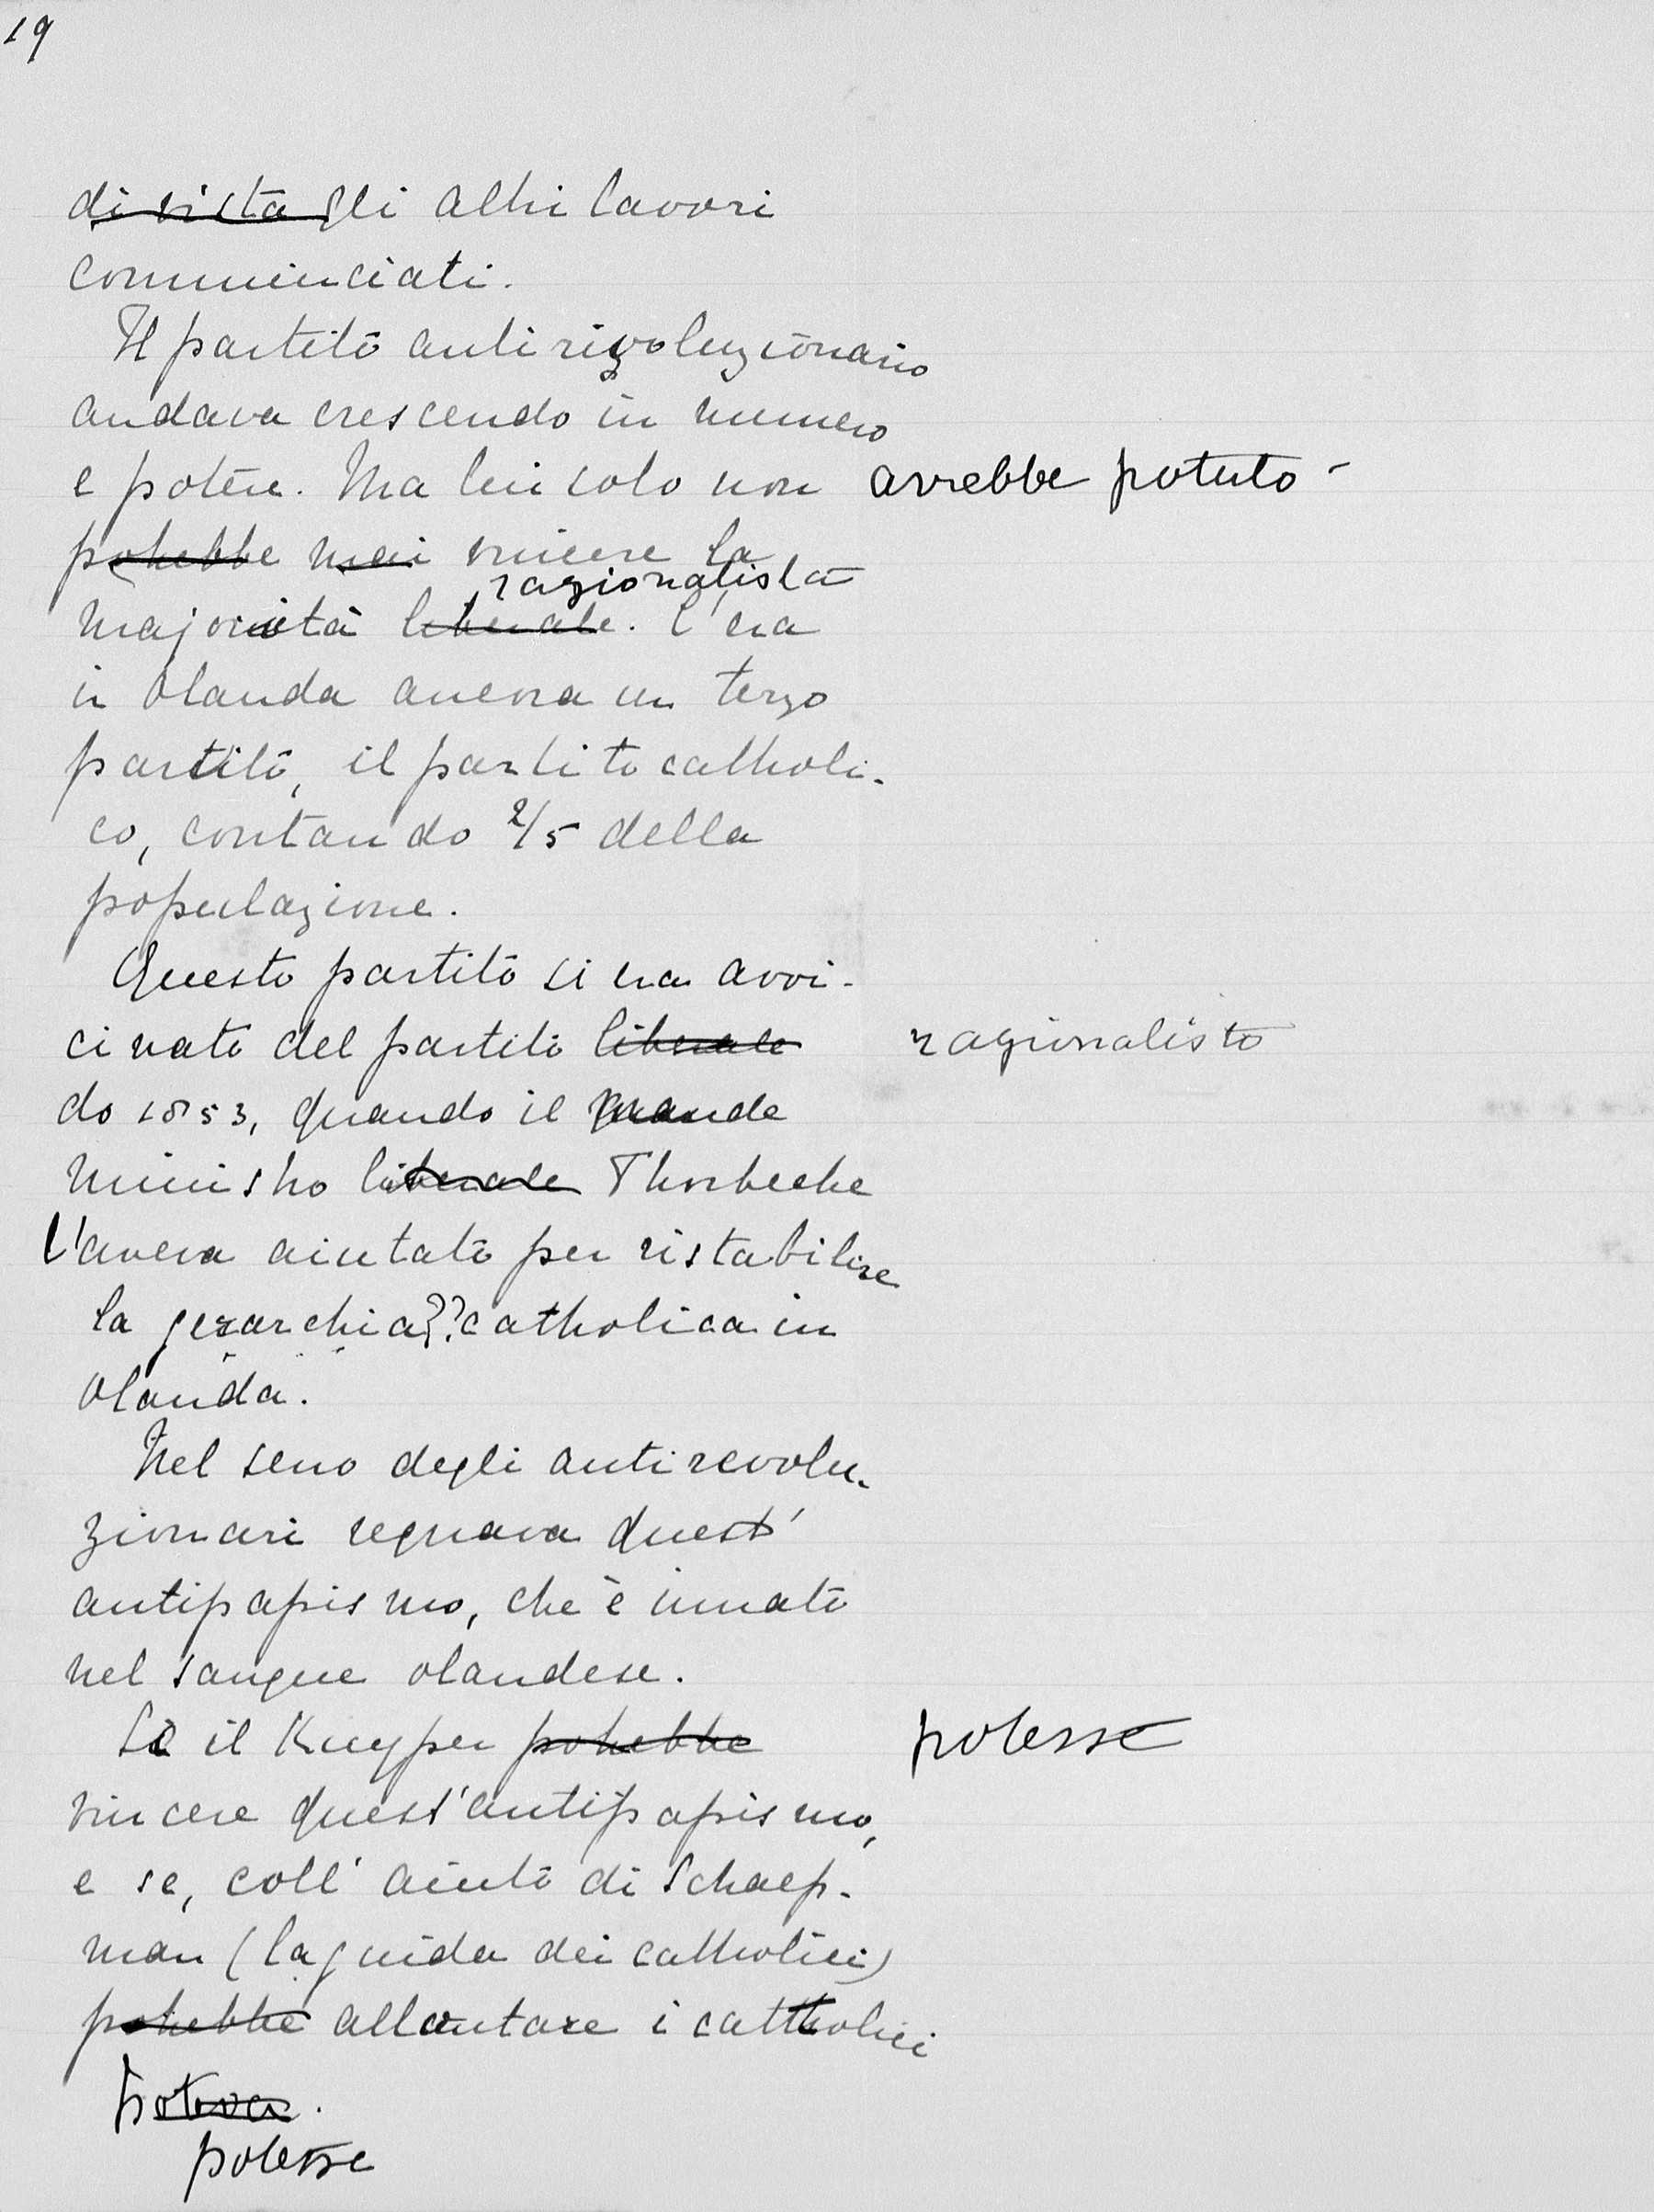 19
di vista gli altri lavori
comminciati.
Il partito antirivoluzionario
andava crescendo in numero
e potere. Ma lui solo non avrebbe potuto -
potrebbe mai vincere la
razionalista
majorità liberale. C'era
in Olanda ancora un terzo
partito, il partito catholi-
co, contando 2/5 della
populazione.
Questo partito si era avvi-
cinato del partito liberale razionalisto
do 1853, quando il grande
ministro liberale Thorbecke
l'avera aiutato per ristabilire
la gerarchia?? catholica in
Olanda.
Nel seno degli antirevolu-
zionari regnava quest'
antipapismo, che è innato
nel sangue olandese.
Se il Kuyper potrebbe potesse
vincere quest'antipapismo,
e se, coll' aiuto di Schaep-
man (la guida dei catholici)
potrebbe allontare i cattholici
poteva.
potesse